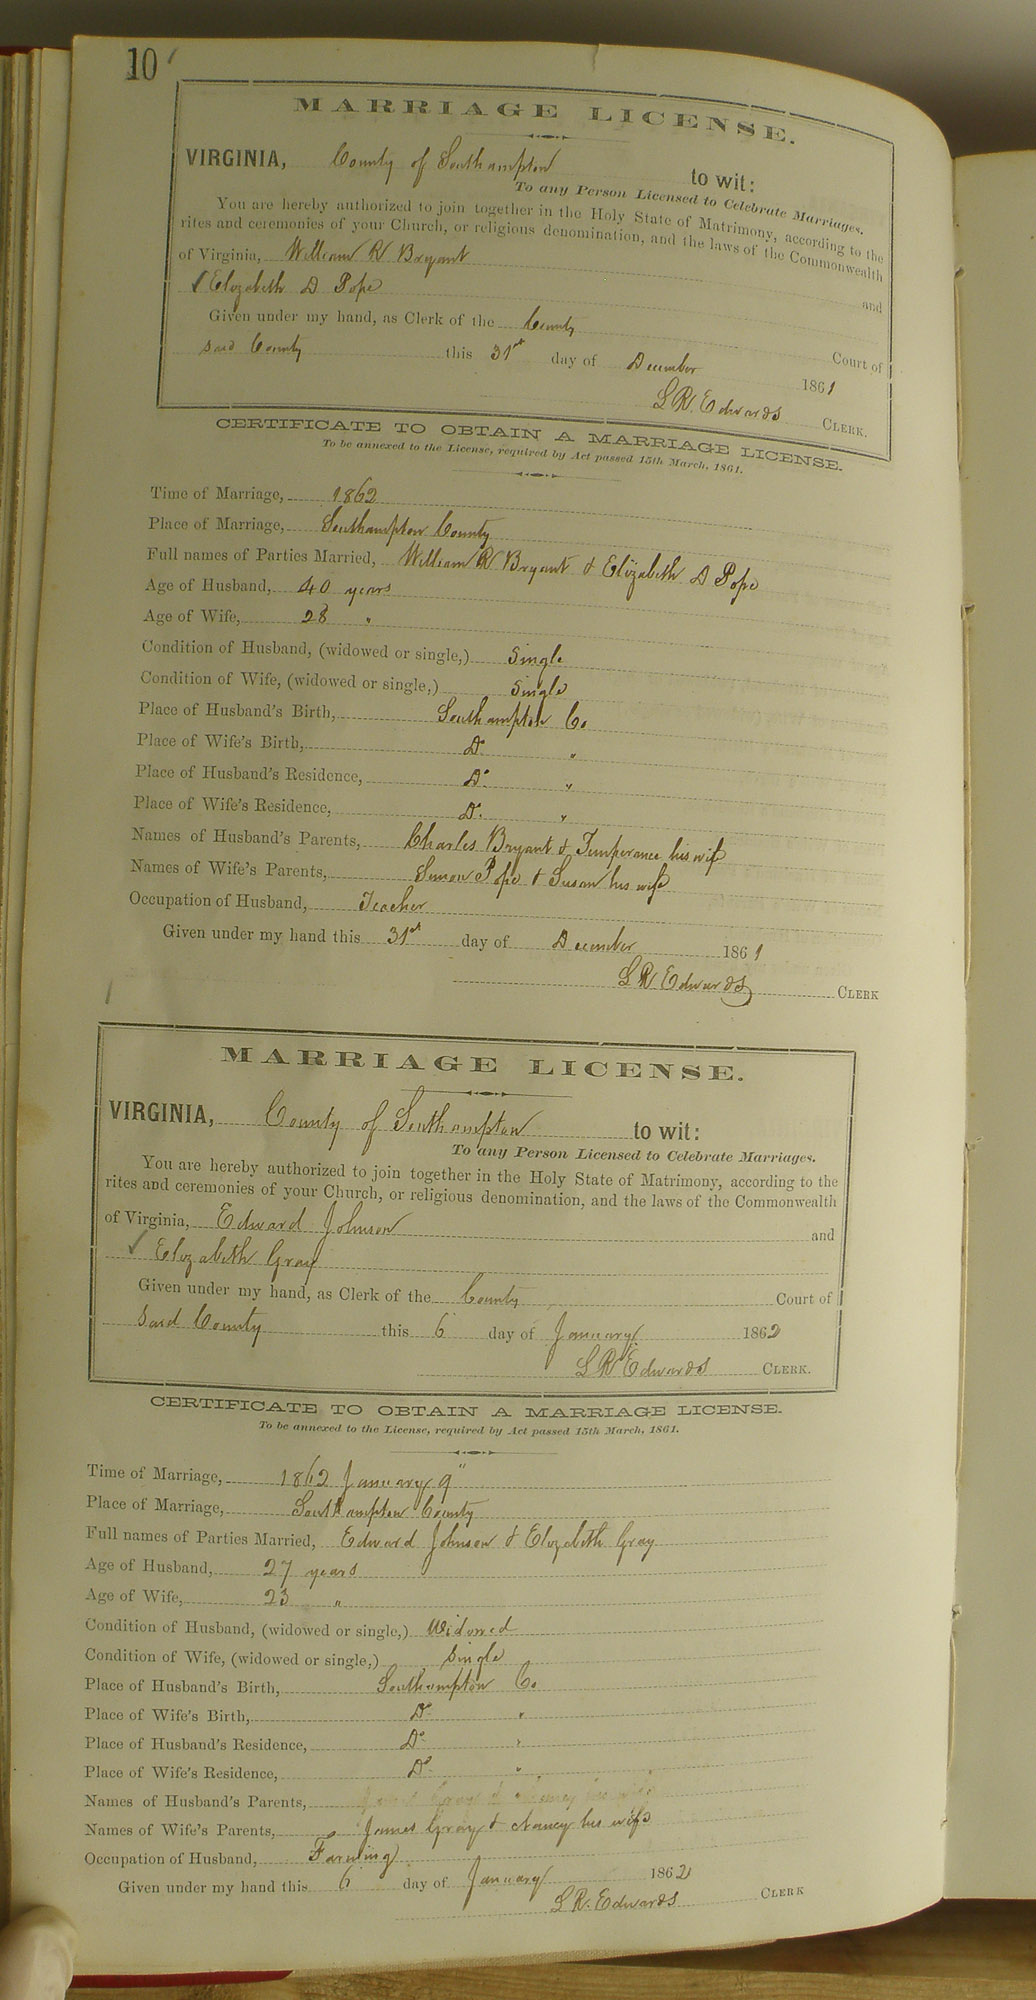 10
MARRIAGE LICENSE.
VIRGINIA, County of Southampton to wit:
To any Person Licensed to Celebrate Marriages.
You are hereby authorized to join together in the Holy State of Matrimony, according to the
rites and ceremonies of your Church, or religious denomination, and the laws of the Commonwealth
of Virginia, William R Bryant and
✓ Elizabeth D Pope
Given under my hand, as Clerk of the County Court of
said County this 31st day of December 1861
L R. Edwards CLERK.
CERTIFICATE TO OBTAIN A MARRIAGE LICENSE.
To be annexed to the License, required by Act passed 15th March, 1861.
Time of Marriage, 1862
Place of Marriage, Southampton County
Full names of Parties Married, William R Bryant & Elizabeth D Pope
Age of Husband, 40 years
Age of Wife, 28 "
Condition of Husband, (widowed or single,) Single
Condition of Wife, (widowed or single,) Single
Place of Husband's Birth, Southampton Co
Place of Wife's Birth, Do "
Place of Husband's Residence, Do "
Place of Wife's Residence, Do "
Names of Husband's Parents, Charles Bryant & Temperance his wife
Names of Wife's Parents, Simon Pope & Susan his wife
Occupation of Husband, Teacher
Given under my hand this 31st day of December 1861
L R Edwards CLERK
MARRIAGE LICENSE.
VIRGINIA, County of Southampton to wit:
To any Person Licensed to Celebrate Marriages.
You are hereby authorized to join together in the Holy State of Matrimony, according to the
rites and ceremonies of your Church, or religious denomination, and the laws of the Commonwealth
of Virginia, Edward Johnson and
✓ Elizabeth Gray
Given under my hand, as Clerk of the County Court of
said County this 6 day of January 1862
L R Edwards CLERK.
CERTIFICATE TO OBTAIN A MARRIAGE LICENSE.
To be annexed to the License, required by Act passed 15th March, 1861.
Time of Marriage, 1862 January 9"
Place of Marriage, Southampton County
Full names of Parties Married, Edward Johnson & Elizabeth Gray
Age of Husband, 27 years
Age of Wife, 23 "
Condition of Husband, (widowed or single,) Widowed
Condition of Wife, (widowed or single,) Single
Place of Husband's Birth, Southampton Co
Place of Wife's Birth, Do "
Place of Husband's Residence, Do "
Place of Wife's Residence, Do "
Names of Husband's Parents, James Gray & Nancy his wife
Names of Wife's Parents, James Gray & Nancy his wife
Occupation of Husband, Farming
Given under my hand this 6 day of January 1862
L R. Edwards CLERK